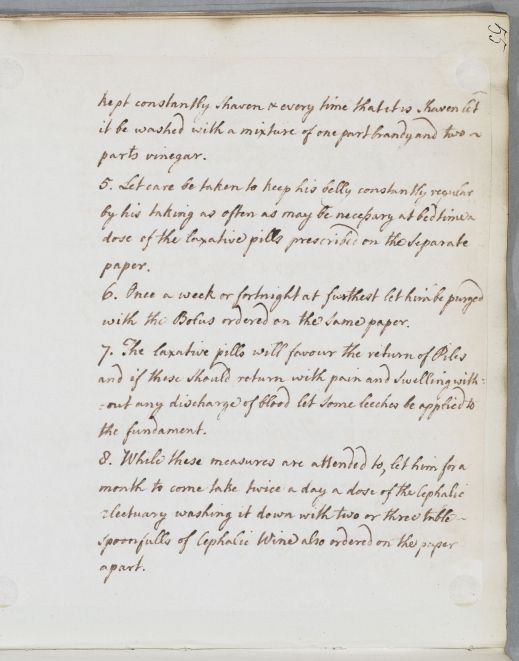 55
kept constantly shaven & every time that it is shaven let
it be washed with a mixture of one part brandy and two
parts vinegar.
5. Let care be taken to keep his belly constantly regular
by his taking as often as may be necessary at bedtime a
dose of the laxative pills prescribed on the separate
paper.
6. Once a week or fortnight at furthest let him be purged
with the Bolus ordered on the same paper.
7. The laxative pills will favour the return of Piles
and if these should return with pain and swelling with=
=out any discharge of blood let some leeches be applied to
the fundament.
8. While these measures are attended to, let him for a
month to come take twice a day a dose of the Cephalic
Electuary washing it down with two or three table
spoonfulls of Cephalic Wine also ordered on the paper
apart.